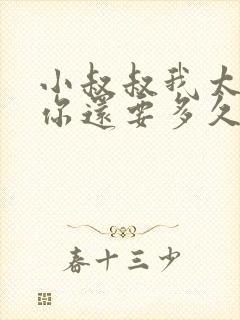 小叔叔我大
你還要多久
春十三少